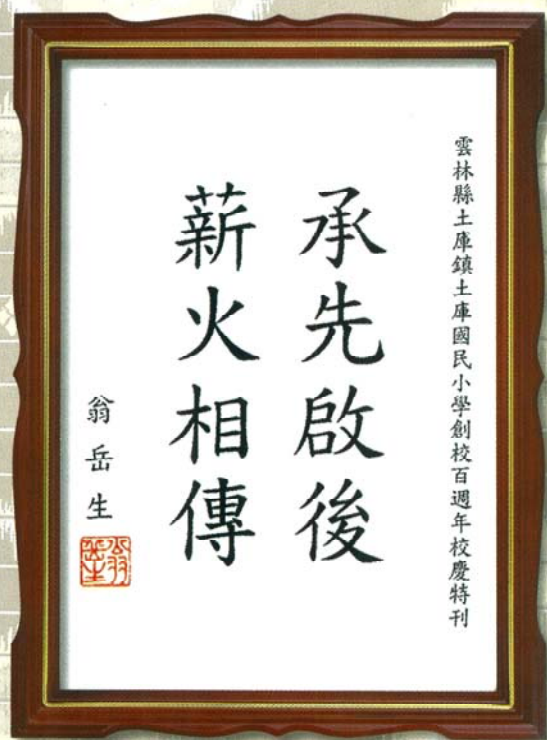 雲林縣土庫鎮土庫國民小學創校百週年校慶特刊
承先啟後
薪火相傳
翁岳生
翁岳生